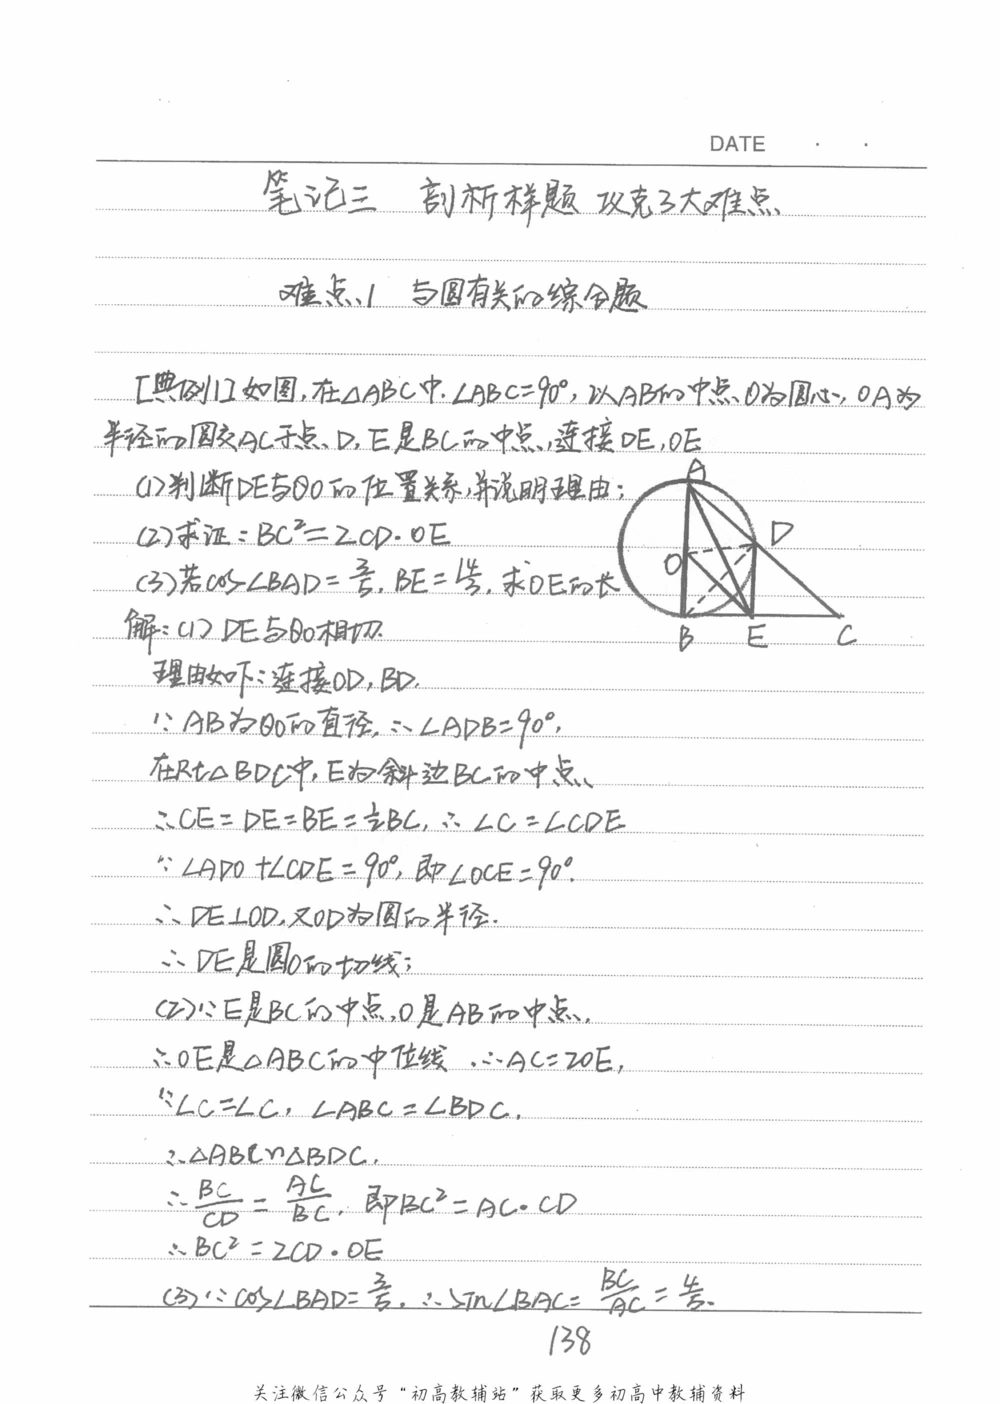 DATE · ·
笔记三 剖析样题 攻克3大难点
难点1 与圆有关的综合题
[典例1]如图,在△ABC中,∠ABC=90°,以AB的中点O为圆心,OA为
半径的圆交AC于点D,E是BC的中点,连接DE,OE
(1)判断DE与⊙O的位置关系,并说明理由;
(2)求证:BC²=2CD·OE
(3)若cos∠BAD=3/5,BE=14/3,求OE的长
A
D
O
B E C
解:(1)DE与⊙O相切.
理由如下:连接OD,BD.
∵AB为⊙O的直径,∴∠ADB=90°,
在Rt△BDC中,E为斜边BC的中点、
∴CE=DE=BE=½BC,∴∠C=∠CDE
∵∠ADO+∠CDE=90°,即∠OCE=90°.
∴DE⊥OD,又OD为圆的半径.
∴DE是圆O的切线;
(2)∵E是BC的中点,O是AB的中点,
∴OE是△ABC的中位线 ∴AC=2OE,
∵∠C=∠C,∠ABC=∠BDC,
∴△ABC∽△BDC,
∴BC/CD=AC/BC,即BC²=AC·CD
∴BC²=2CD·OE
(3)∵cos∠BAD=3/5,∴sin∠BAC=BC/AC=4/5.
138
关注微信公众号“初高教辅站”获取更多初高中教辅资料